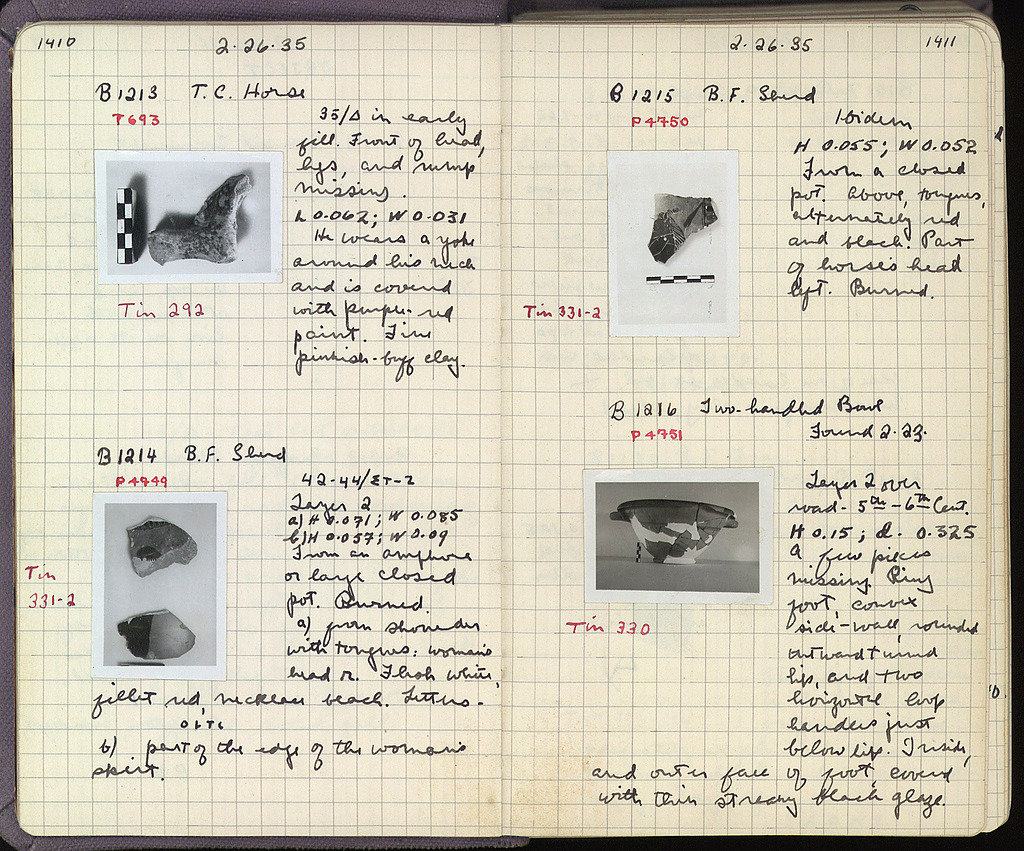 1410
2·26·35
B 1213 T.C. Horse
T 693
35/Δ in early
fill. Front of head,
legs, and rump
missing.
L 0.062; W 0.031
He wears a yoke
around his neck
and is covered
with purple-red
paint. Fine
pinkish-buff clay.
Tin 292
B 1214 B.F. Sherd
P 4749
42-44/ΣΤ-Ζ
Layer 2
a) H 0.071; W 0.085
b) H 0.057; W 0.09
From an amphora
or large closed
pot. Burned.
a) from shoulder
with tongues: woman's
head r. Flesh white,
fillet red, necklace black. Letters-
b) part of the edge of the woman's
skirt.
Tin
331-2
2·26·35
1411
B 1215 B.F. Sherd
P 4750
Ibidem
H 0.055; W 0.052
From a closed
pot. Above, tongues,
alternately red
and black. Part
of horse's head
left. Burned.
Tin 331-2
B 1216 Two-handled Bowl
P 4751
Found 2·23·
Layer 2 over
road - 5th - 6th Cent.
H 0.15; d. 0.325
A few pieces
missing. Ring
foot, convex
side-wall, rounded
outward turned
lip, and two
horizontal loop
handles just
below lip. Inside,
and outer face of foot, covered
with thin streaky black glaze.
Tin 330